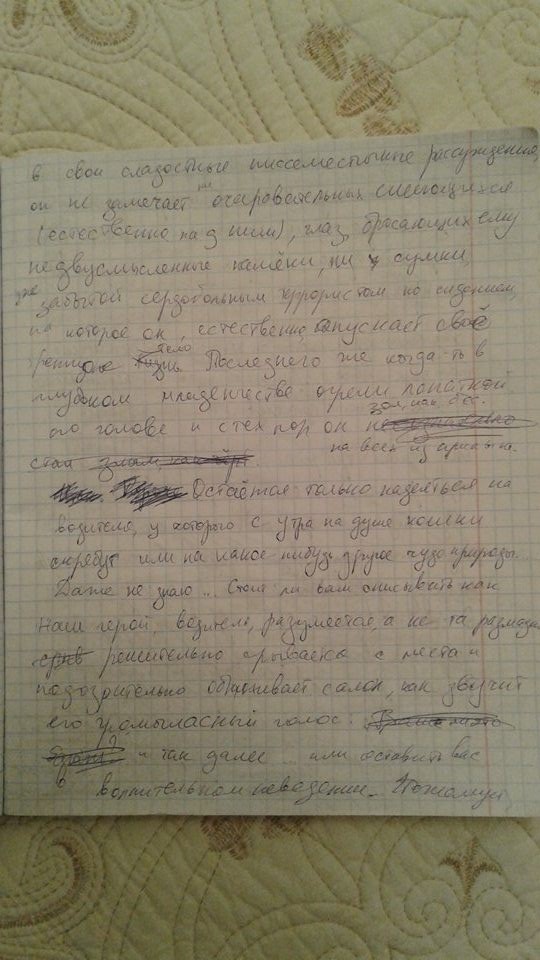 в свои сладостные писсеместычные рассуждения,
он не замечает ни очаровательных смеющихся
(естественно над ним), глаз, бросающих ему
недвусмысленные намёки, ни сумки,
уже забытой сердобольным террористом на сидением,
на которое он, естественно, опускает своё
бренное тело. Последнего же когда-то в
глубоком младенчестве огрели лопаткой
по голове и с тех пор он зол, как бес.
стал на всех из
Остаётся только надеяться на
водителя, у которого с утра на душе кошки
скребут или на какое нибудь другое чудо природы.
Даже не знаю... Стоит ли вам описывать как
Наш герой, водитель, разумеется, а не та размазня
решительно срывается с места и
подозрительно салон, как звучит
его громогласный голос.
и так далее... или оставить вас
в неведении. Пожалуй